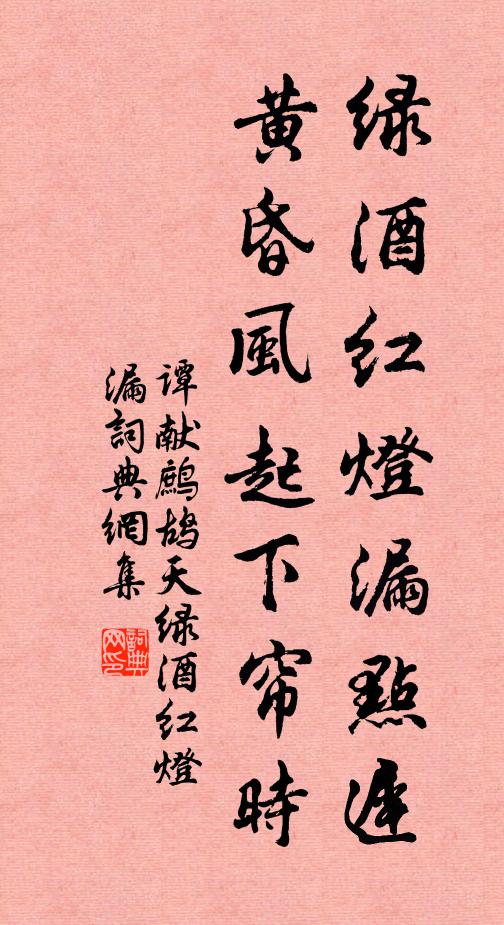 绿酒红燈漏點遲
黄昏風起下帘時
谭献鷓鴣天绿酒红燈
漏詞典網集
詞典网印